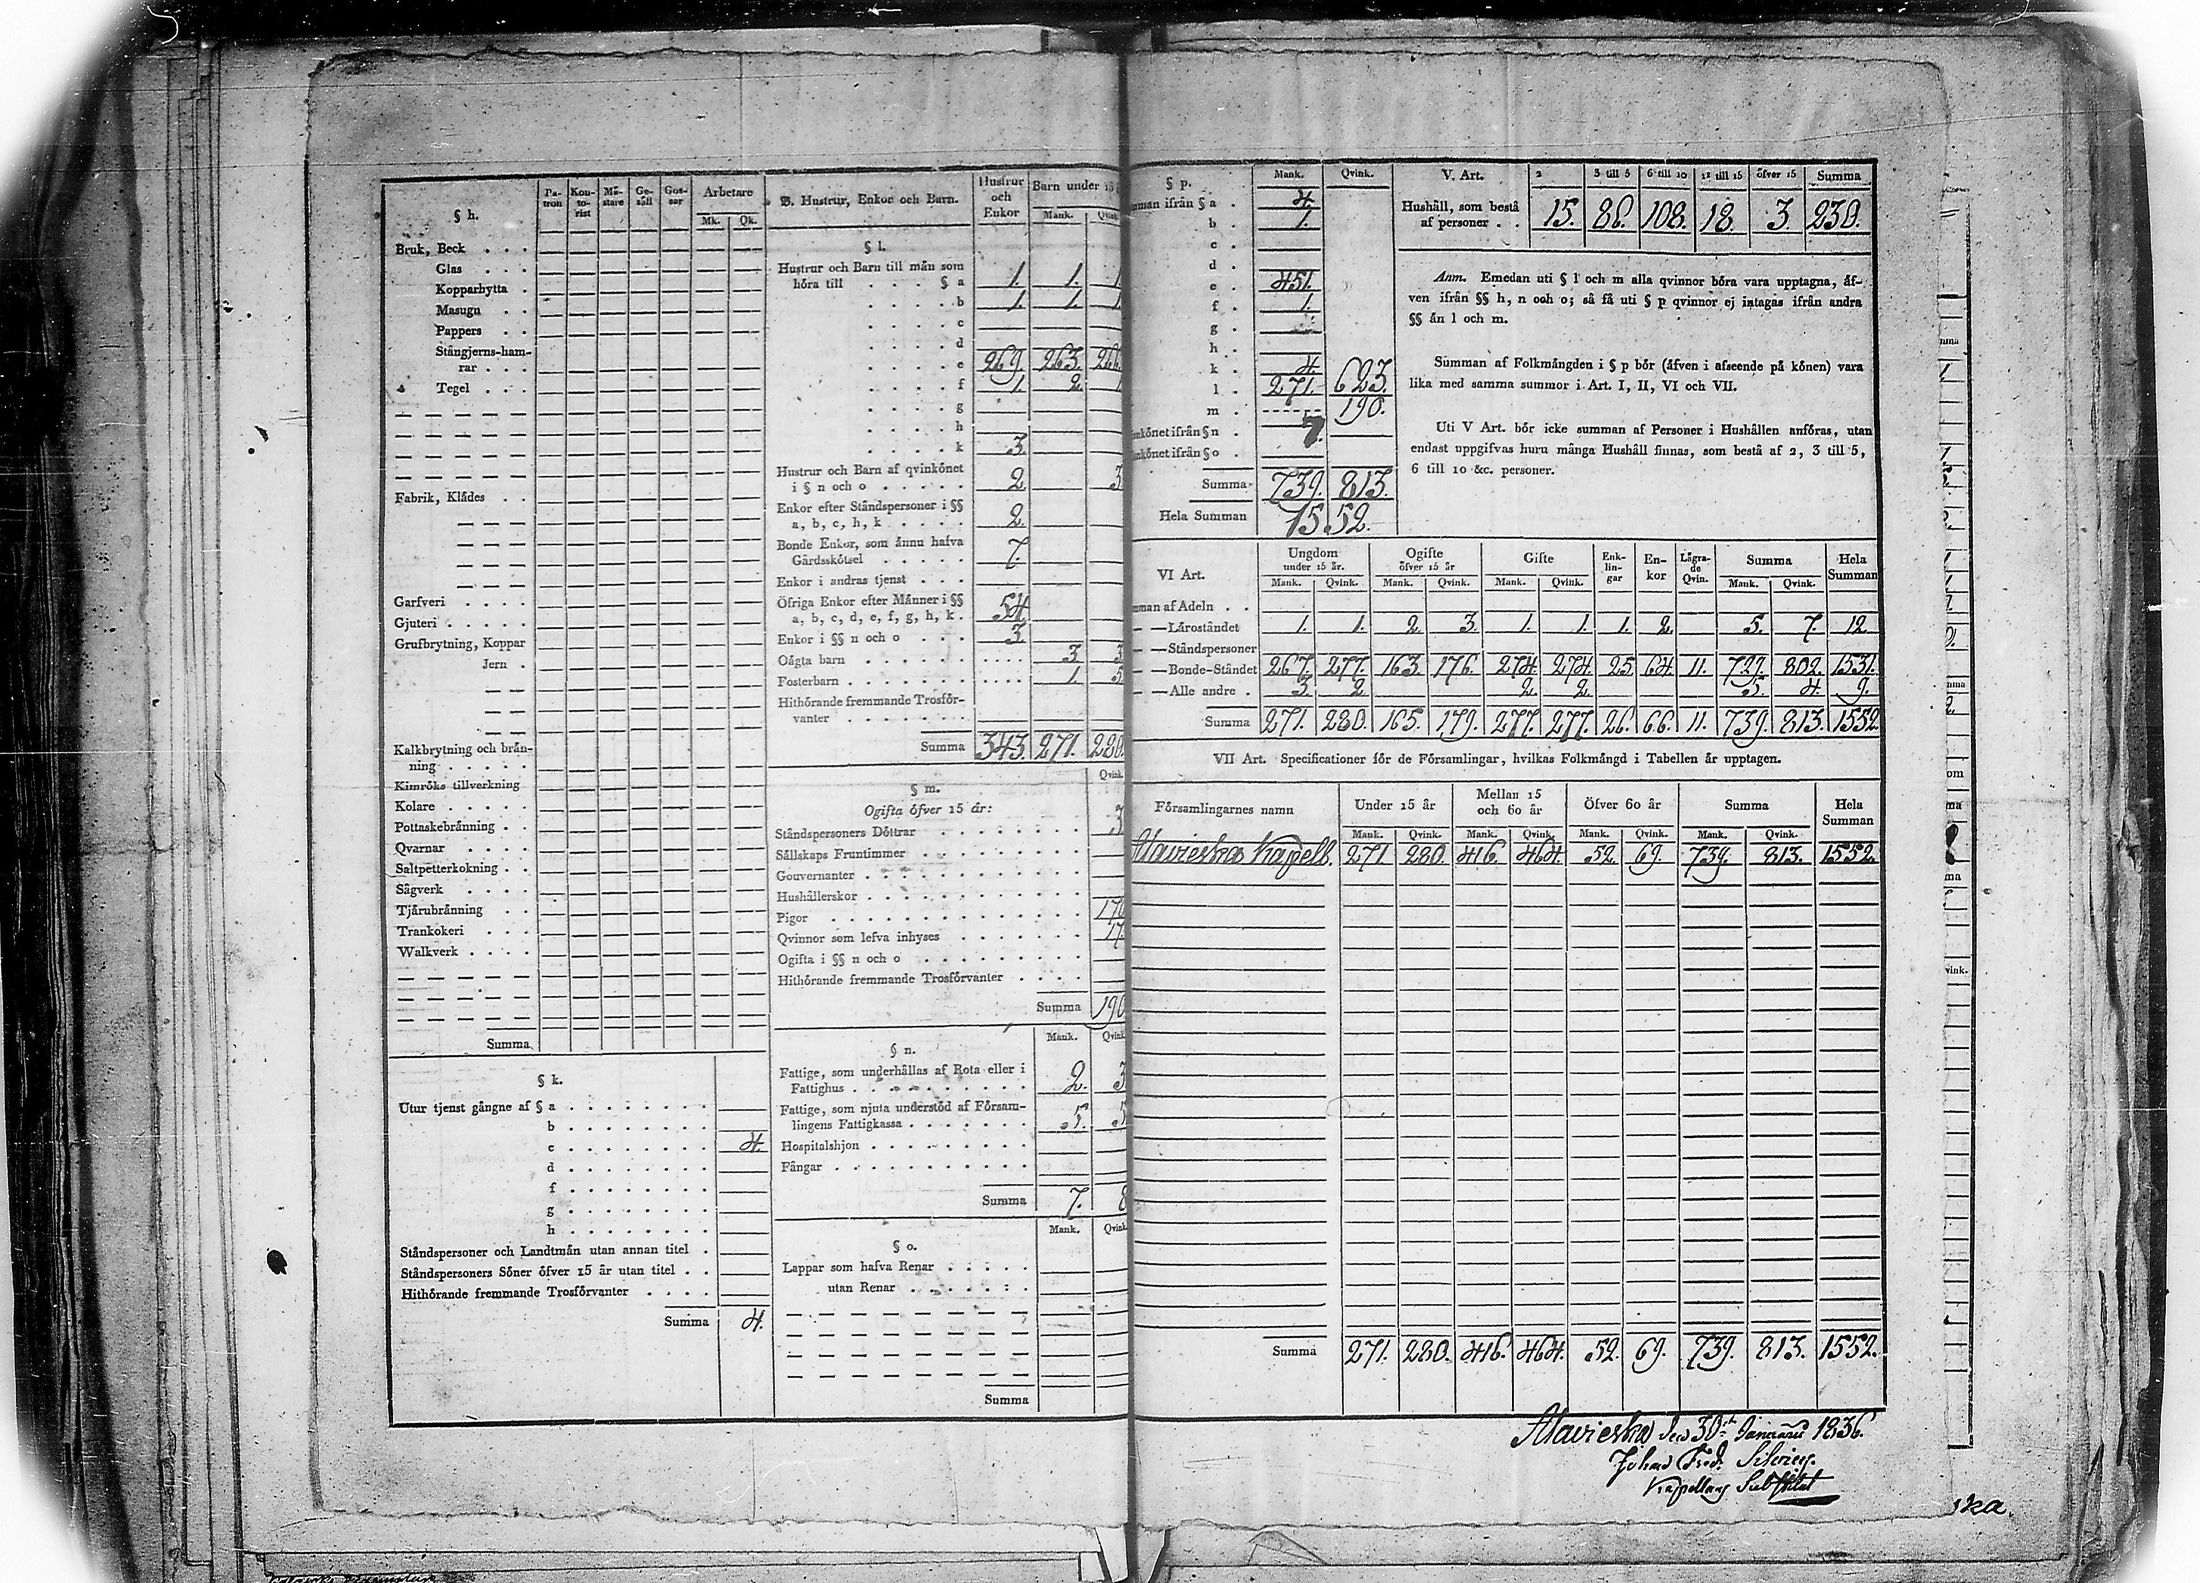 § h.
Pa- tron
Kon- to- rist
Mä- stare
Ge- säll
Gos- sar
Arbetare
Mk. Qk.
Bruk, Beck . . .
Glas . . .
Kopparhytta .
Masugn . .
Pappers . .
Stångjerns-ham-
rar . . .
Tegel . . .
Fabrik, Klädes . .
Garfveri . . . .
Gjuteri . . . . .
Grufbrytning, Koppar
Jern .
Kalkbrytning och brän-
ning . . . . .
Kimröks tillverkning
Kolare . . . . .
Pottaskebränning . .
Qvarnar . . . .
Saltpetterkokning . .
Sågverk . . . .
Tjärubränning . .
Trankokeri . . .
Walkverk . . . .
Summa
§ k.
Utur tjenst gångne af § a . . . . . . .
b . . . . . . .
e . . . . . . . 4.
d . . . . . . .
f . . . . . . .
g . . . . . . .
h . . . . . . .
Ståndspersoner och Landtmän utan annan titel .
Ståndspersoners Söner öfver 15 år utan titel . .
Hithörande fremmande Trosförvanter . . . .
Summa 4.
B. Hustrur, Enkor och Barn.
Hustrur och Enkor
Barn under 15
Mank. Qvink.
§ l.
Hustrur och Barn till män som
höra till . . . . § a 1. 1. 1.
b 1. 1. 1
c
d
e 269. 263. 266.
f 1. 2. 1
g
h
k 3.
Hustrur och Barn af qvinkönet
i § n och o . . . . . 2. 3.
Enkor efter Ståndspersoner i §§
a, b, c, h, k . . . . . 2.
Bonde Enkor, som ännu hafva
Gårdsskötsel . . . . . 7.
Enkor i andras tjenst . . .
Öfriga Enkor efter Männer i §§
a, b, c, d, e, f, g, h, k . 54.
Enkor i §§ n och o . . . 3.
Oägta barn . . . . . . . 3 3
Fosterbarn . . . . . . . 1. 5
Hithörande fremmande Trosför-
vanter . . . . . . .
Summa 343. 271. 280
§ m.
Qvink.
Ogifta öfver 15 år:
Ståndspersoners Döttrar . . . . . . . 3
Sällskaps Fruntimmer . . . . . . . .
Gouvernanter . . . . . . . . . . .
Hushållerskor . . . . . . . . . . .
Pigor . . . . . . . . . . . . . 170
Qvinnor som lefva inhyses . . . . . . 17.
Ogifta i §§ n och o . . . . . . . . .
Hithörande fremmande Trosförvanter . . . .
Summa 190
§ n.
Mank. Qvink
Fattige, som underhållas af Rota eller i
Fattighus . . . . . . . . . 2. 3
Fattige, som njuta understöd af Församl-
lingens Fattigkassa . . . . . . . 5. 5
Hospitalshjon . . . . . . . . . .
Fångar . . . . . . . . . . . .
Summa 7. 8
§ o.
Mank. Qvink
Lappar som hafva Renar . . . . .
utan Renar . . . . . .
Summa
§ p.
Mank. Qvink.
man ifrån § a . 4.
b . 1.
c .
d .
e . 451.
f . 1.
g .
h
k . 4
l . 271. 623.
m . 190.
ankönet ifrån § n . 7.
ankönet ifrån § o .
Summa 739. 813.
Hela Summan 1552.
V. Art.
2 3 till 5 6 till 10 11 till 15 öfver 15 Summa
Hushåll, som bestå
af personer . . 15. 86. 108. 18. 3. 230.
Anm. Emedan uti § l och m alla qvinnor böra vara upptagna, äf-
ven ifrån §§ h, n och o; så få uti § p qvinnor ej intagas ifrån andra
§§ än l och m.
Summan af Folkmängden i § p bör (äfven i afseende på könen) vara
lika med samma summor i Art. I, II, VI och VII.
Uti V Art. bör icke summan af Personer i Hushållen anföras, utan
endast uppgifvas huru många Hushåll finnas, som bestå af 2, 3 till 5,
6 till 10 &c. personer.
VI Art.
Ungdom under 15 år.
Ogifte öfver 15 år
Gifte
Enk- lin- gar
En- kor
Lägra- de Qvin.
Summa
Hela Summan
Mank. Qvink. Mank. Qvink. Mank. Qvink. Mank. Qvink.
man af Adeln . .
— — Läroståndet 1. 1. 2. 3. 1. 1. 1. 2. 5. 7. 12
— — Ståndspersoner
— — Bonde-Ståndet 267. 277. 163. 176. 274. 274. 25. 64. 11. 729. 802. 1531.
— — Alle andre . 3. 2. 2. 2. 5. 4. 9.
Summa 271. 280. 165. 179. 277. 277. 26. 66. 11. 739. 813. 1552
VII Art. Specificationer för de Församlingar, hvilkas Folkmängd i Tabellen är upptagen.
Församlingarnes namn
Under 15 år
Mellan 15 och 60 år
Öfver 60 år
Summa
Hela Summan
Mank. Qvink. Mank. Qvink. Mank. Qvink. Mank. Qvink.
Alavieska Kapell. 271. 280. 416. 464. 52. 69. 739. 813. 1552.
Summa 271. 280. 416. 464. 52. 69. 739. 813. 1552.
Alavieska den 30de Januarii 1836.
Johan Fred. Silvius.
Kapellans Substitut
ska.